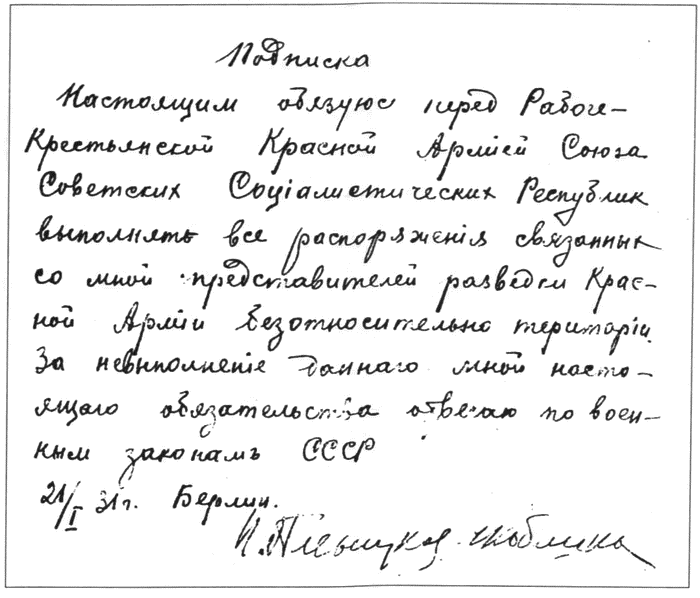 Подписка
Настоящим обязуюс перед Рабоче-
Крестьянской Красной Армией Союза
Советских Соціалистических Республик
выполнять все распоряженія связанных
со мной представителей разведки Крас-
ной Арміи безотносительно територіи.
За невыполненіе даннаго мной насто-
ящаго обязательства отвечаю по воен-
ным законамъ СССР
21/I 31г. Берлин.
Н. Плевицкая